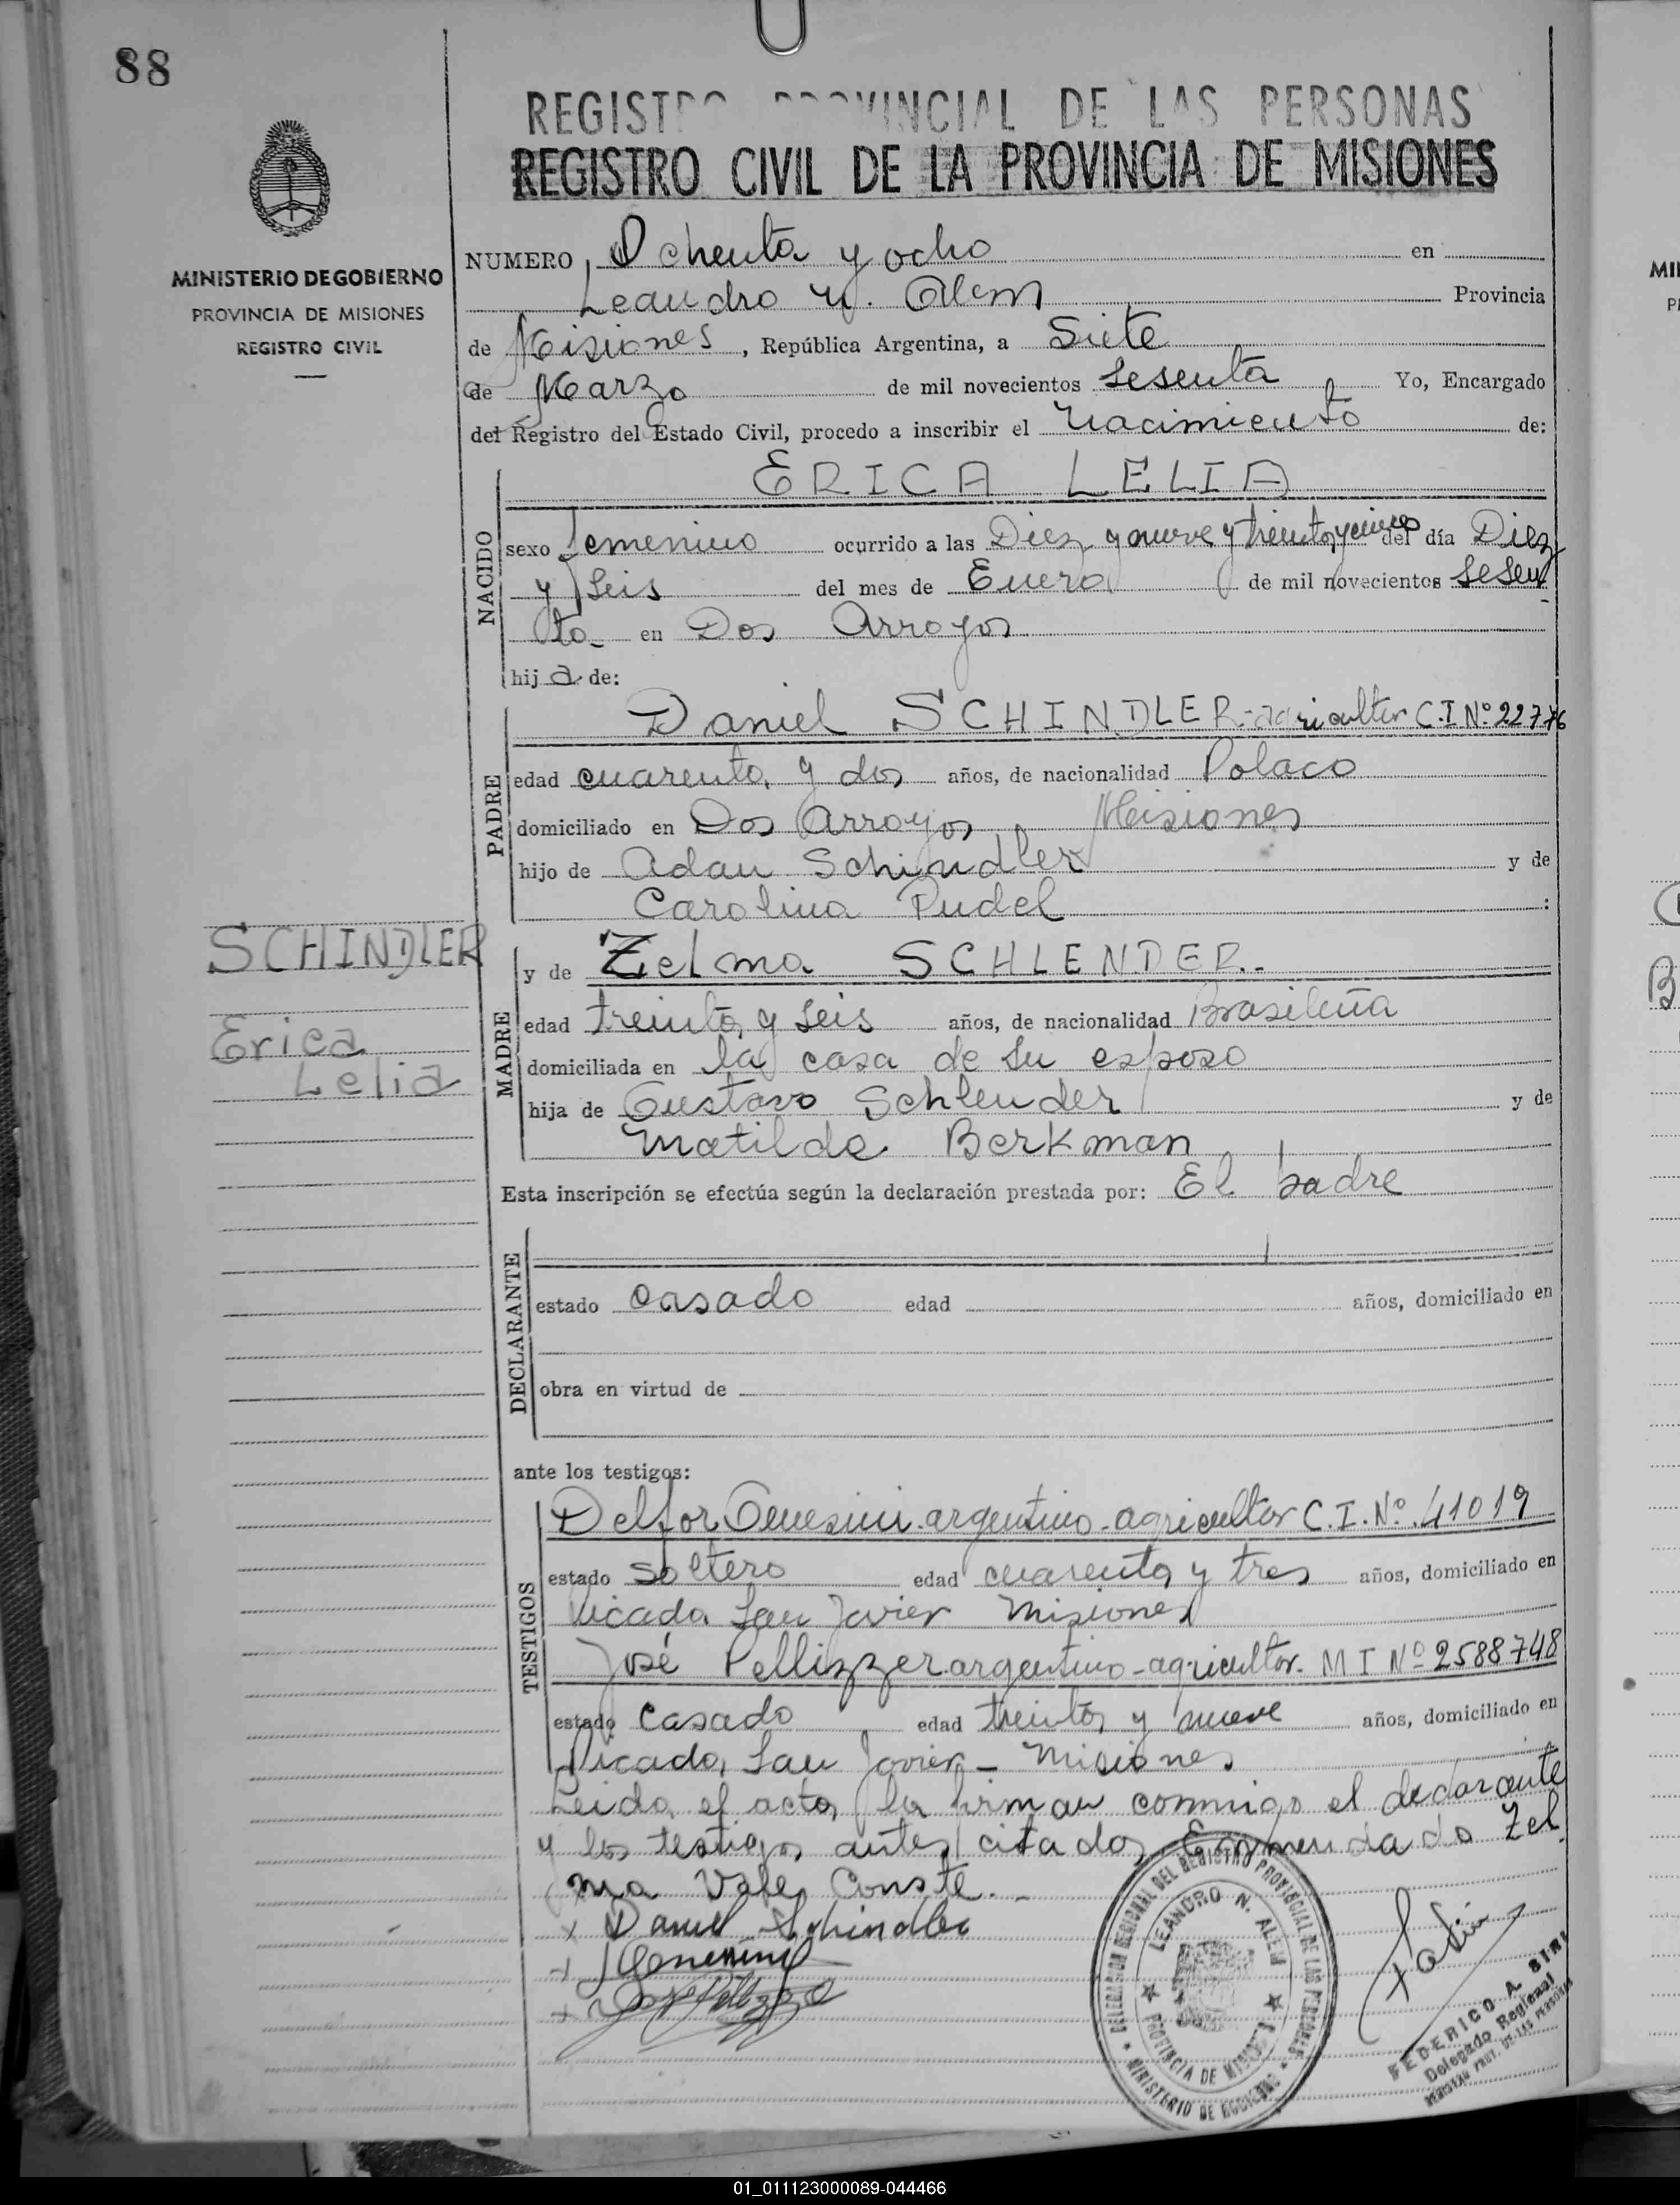 88
REGISTRO PROVINCIAL DE LAS PERSONAS
REGISTRO CIVIL DE LA PROVINCIA DE MISIONES
MINISTERIO DE GOBIERNO
PROVINCIA DE MISIONES
REGISTRO CIVIL
NUMERO Ochenta y ocho en
Leandro N. Alem Provincia
de Misiones, República Argentina, a Siete
de Marzo de mil novecientos Sesenta Yo, Encargado
del Registro del Estado Civil, procedo a inscribir el Nacimiento de:
NACIDO
ERICA LELIA
sexo femenino ocurrido a las Diez y nueve y treinta y cinco del día Diez
y Seis del mes de Enero de mil novecientos Sesen
ta en Dos Arroyos
hija de:
PADRE
Daniel SCHINDLER-agricultor C.I Nº 22776
edad cuarenta y dos años, de nacionalidad Polaco
domiciliado en Dos Arroyos, Misiones
hijo de Adan Schindler y de
Carolina Pudel :
SCHINDLER
Erica
Lelia
MADRE
y de Zelma SCHLENDER.-
edad treinta y seis años, de nacionalidad Brasileña
domiciliada en la casa de su esposo
hija de Gustavo Schlender y de
Matilde Berkman
Esta inscripción se efectúa según la declaración prestada por: El padre
DECLARANTE
estado casado edad años, domiciliado en
obra en virtud de
ante los testigos:
TESTIGOS
Delfor Genesini-argentino-agricultor C.I.Nº.41019
estado soltero edad cuarenta y tres años, domiciliado en
Picada San Javier Misiones
José Pellizzer argentino-agricultor- M I Nº 2588748
estado casado edad treinta y nueve años, domiciliado en
Picada San Javier - Misiones
Leida el acta, la firman conmigo el declarante
y los testigos antes citados, Enmendado Zel
ma Vale, Conste.-
x Daniel Schindler
+ Genesini
+ José Pellizzer
DELEGACION REGIONAL DEL REGISTRO PROVINCIAL DE LAS PERSONAS
LEANDRO N. ALEM
PROVINCIA DE MISIONES
MINISTERIO DE GOBIERNO
FEDERICO A. BIRI
Delegado Regional
REGISTRO PROV. DE LAS PERSONAS
01_011123000089-044466